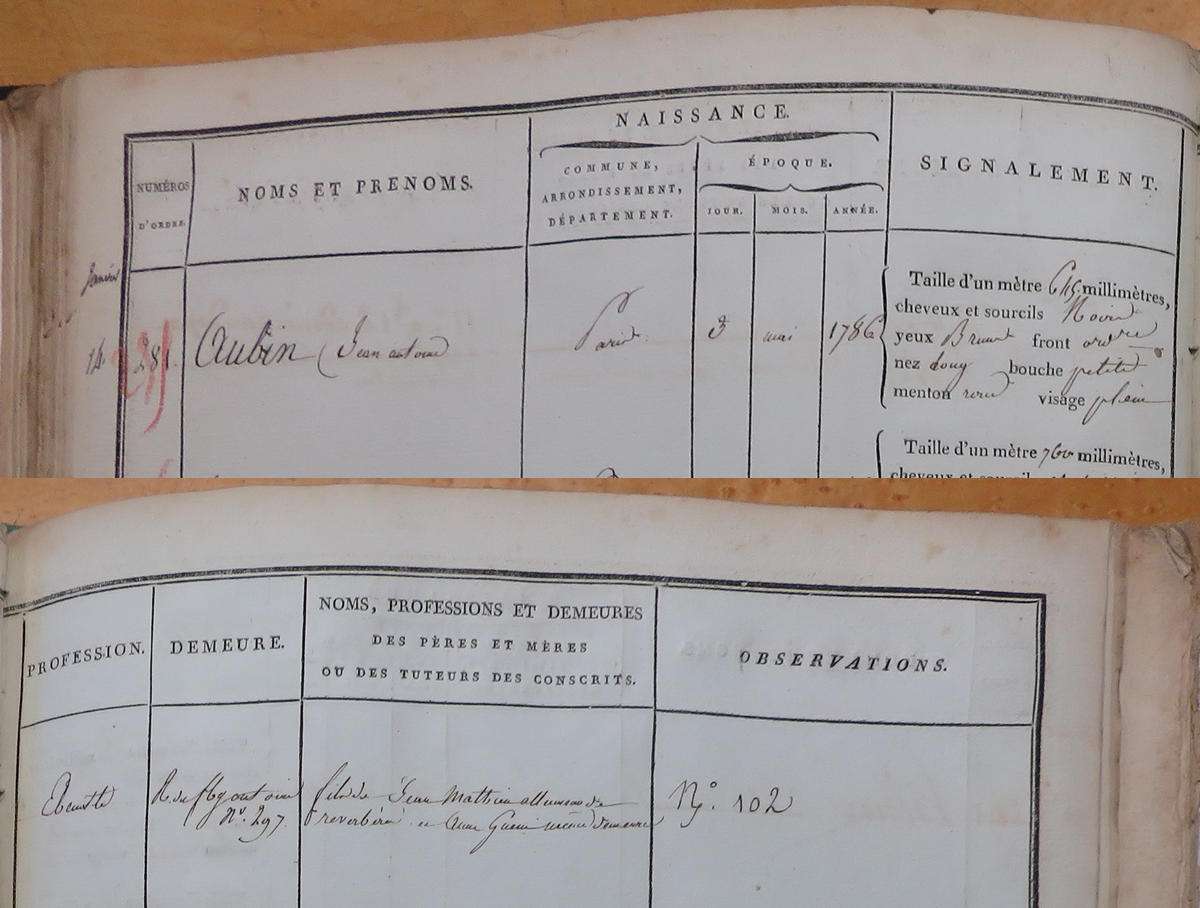 NAISSANCE.
NUMÉROS
D'ORDRE.
NOMS ET PRENOMS.
COMMUNE,
ARRONDISSEMENT,
DÉPARTEMENT.
ÉPOQUE.
JOUR.
MOIS.
ANNÉE.
SIGNALEMENT.
Janvier
14
281.
Aubin (Jean antoine
Paris
3
mai
1786
Taille d'un mètre 645 millimètres,
cheveux et sourcils Noirs
yeux Bruns front ordre
nez long bouche petite
menton rond visage plein
Taille d'un mètre 760 millimètres,
cheveux et sourcils
PROFESSION.
DEMEURE.
NOMS, PROFESSIONS ET DEMEURES
DES PÈRES ET MÈRES
OU DES TUTEURS DES CONSCRITS.
OBSERVATIONS.
Ebeniste
R. du fbg antoine
N°. 297.
fils de Jean Mathieu allumeur de
reverbère et Anne même demeure
N°. 102